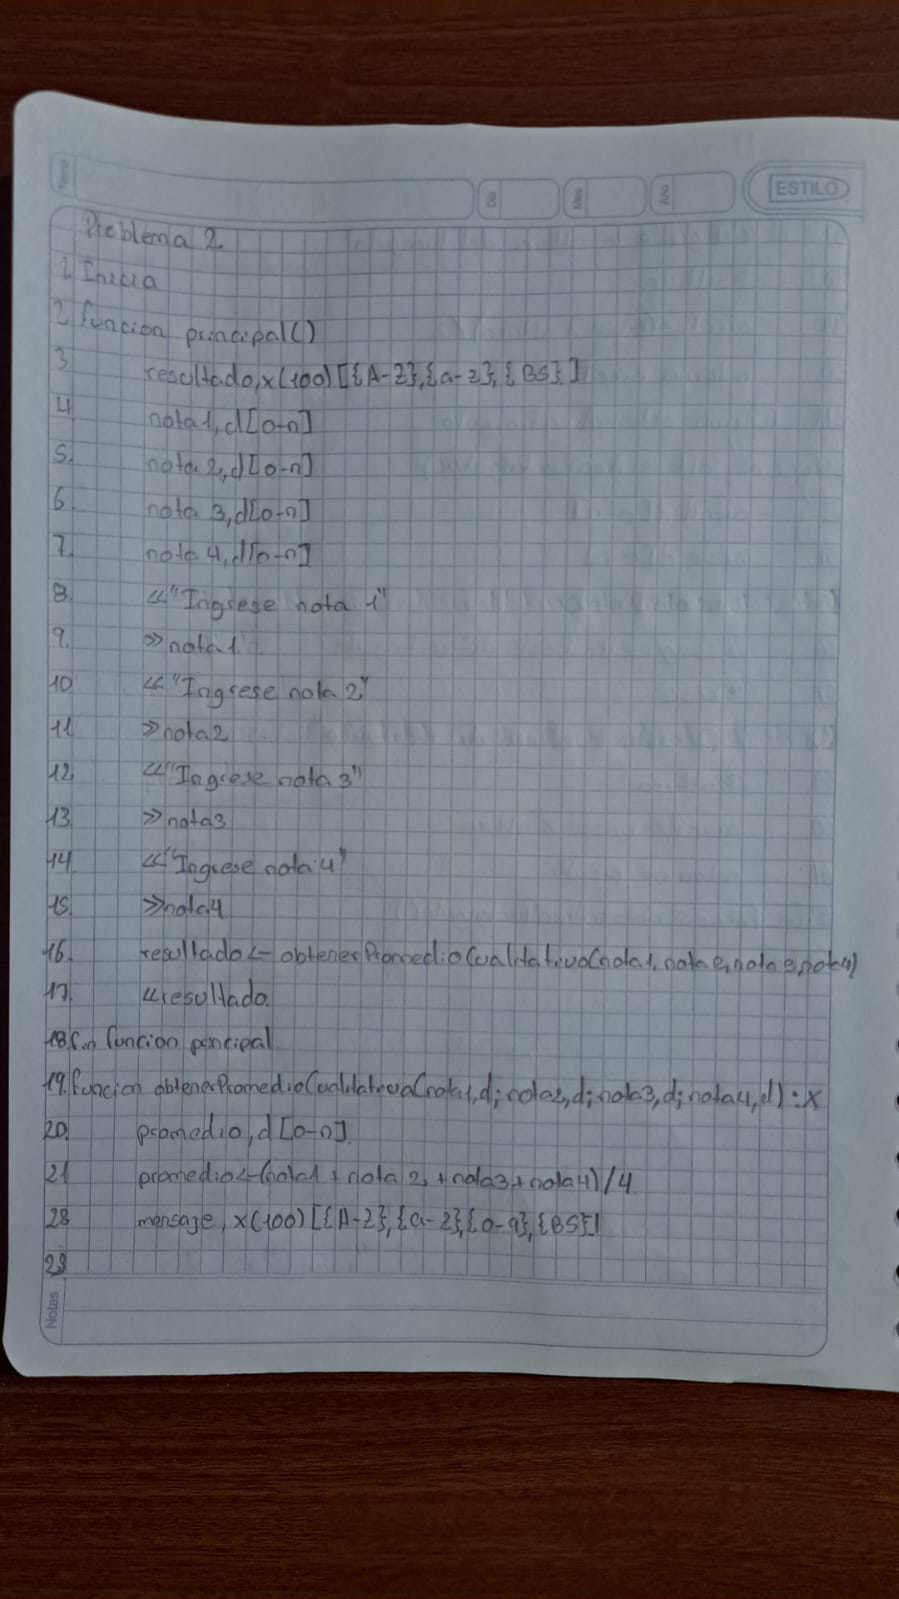 Tema
Día
Mes
Año
ESTILO
Problema 2
1. Inicia
2. funcion principal()
3 resultado,x(100)[{A-Z},{a-z},{BS}]
4 nota1,d[0-n]
5. nota 2,d[0-n]
6 nota 3,d[0-n]
7. nota 4,d[0-n]
8. <<"Ingrese nota 1"
9. >>nota1
10 <<"Ingrese nota 2"
11 >>nota2
12 <<"Ingrese nota 3"
13 >>nota3
14 <<"Ingrese nota 4"
15. >>nota4
16. resultado<- obtenerPromedioCualitativo(nota1, nota 2, nota 3, nota4)
17. <<resultado.
18. fin funcion principal
19. funcion obtenerPromedioCualitativo(nota1,d; nota2,d; nota3,d; nota4,d) : x
20. promedio, d [0-n]
21 promedio<-(nota1 + nota 2 +nota3+nota4)/4
28 mensaje, x(100)[{A-Z},{a-z},{0-9},{BS}]
Notas